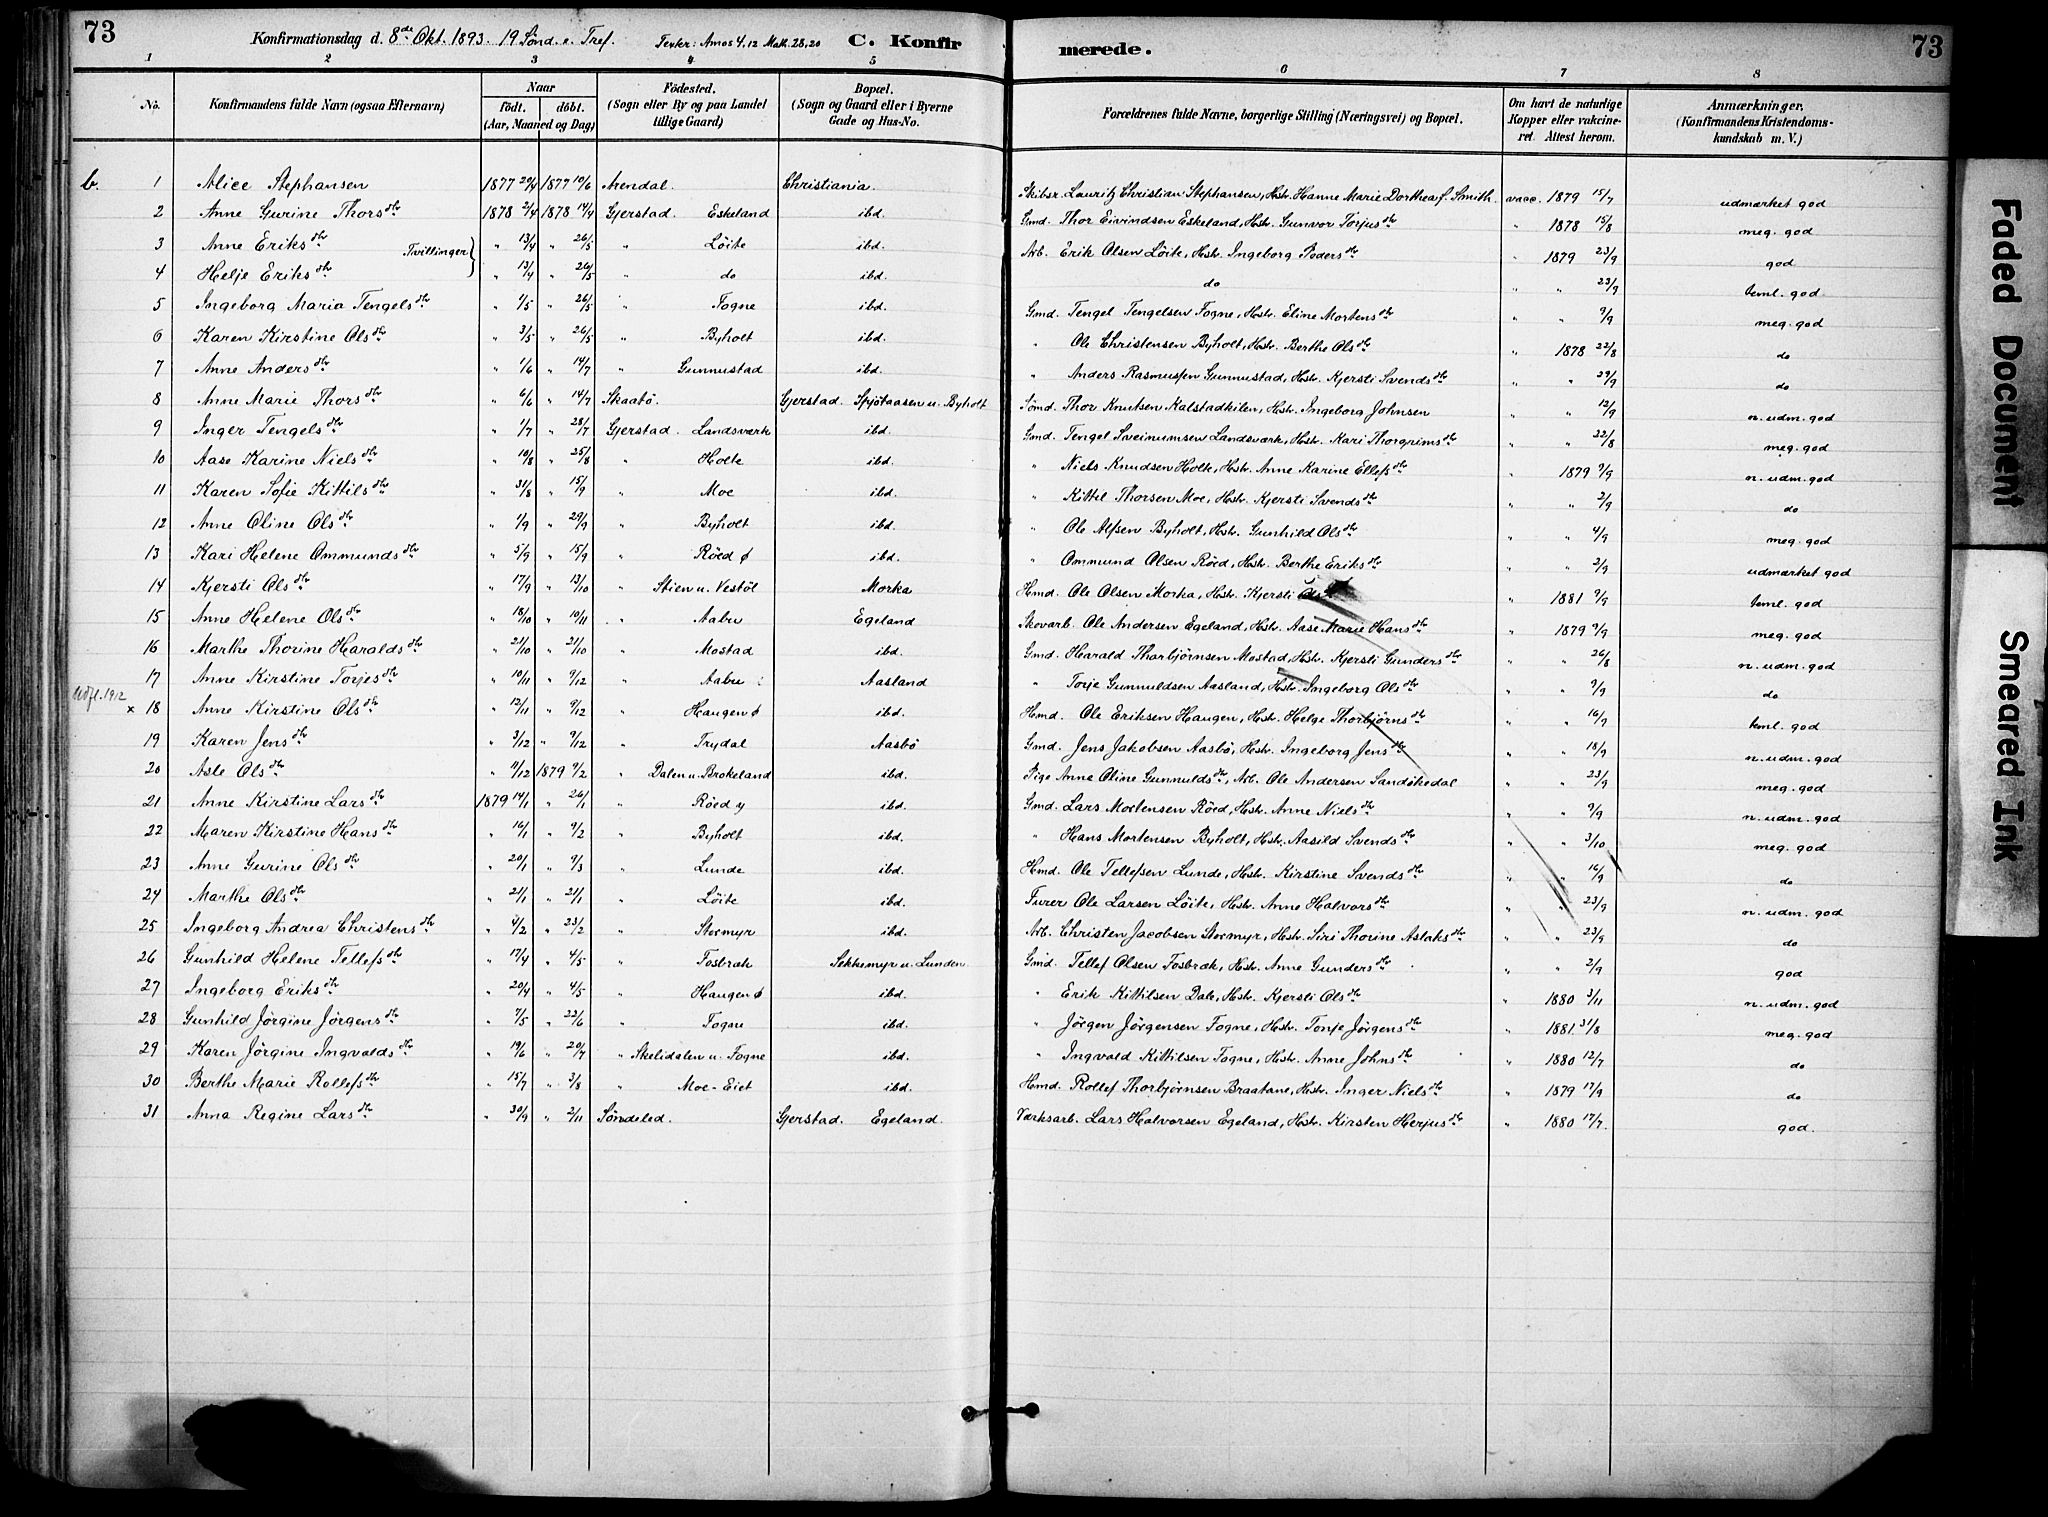 73
Konfirmationsdag d. 8de Okt. 1893. 19 Sönd. e. Tref. Texter: Amos 4,12 Math. 28,20 C. Konfirmerede.
73
1 2 3 4 5 6 7 8
No. Konfirmandens fulde Navn (ogsaa Efternavn) Naar födt. döbt. (Aar, Maaned og Dag) Födested. (Sogn eller By og paa Landet tillige Gaard) Bopæl. (Sogn og Gaard eller i Byerne Gade og Hus-No. Forældrenes fulde Navne, borgerlige Stilling (Næringsvei) og Bopæl. Om havt de naturlige Kopper eller vakcineret. Attest herom. Anmærkninger. (Konfirmandens Kristendomskundskab m. V.)
b. 1 Alice Stephansen 1877 20/4 1877 10/6 Arendal. Christiania. Skibsr. Lauritz Christian Stephansen, Hstr. Hanne Marie Dorthea f. Smith. vacc. 1879 15/7 udmærket god
2 Anne Gurine Thorsdtr 1878 2/4 1878 14/4 Gjerstad. Eskeland ibd. Gmd. Thor Eivindsen Eskeland, Hstr. Gunvor Torjusdtr " 1878 15/8 meg. god
3 Anne Eriksdtr Tvillinger " 13/4 " 26/5 " Löite ibd. Arb. Erik Olsen Löite, Hstr. Ingeborg Pedersdtr " 1879 23/9 god
4 Helje Eriksdtr " 13/4 " 26/5 " do ibd. do " " 23/9 teml. god
5 Ingeborg Maria Tengelsdtr " 1/5 " 26/5 " Fogne ibd. Gmd. Tengel Tengelsen Fogne, Hstr. Eline Mortensdtr " " 9/9 meg. god
6 Karen Kirstine Olsdtr " 3/5 " 26/5 " Byholt ibd. " Ole Christensen Byholt, Hstr. Berthe Olsdtr " 1878 22/8 do
7 Anne Andersdtr " 1/6 " 14/7 Gunnustad ibd. " Anders Rasmussen Gunnustad, Hstr. Kjersti Svendsdtr " " 29/9 do
8 Anne Marie Thorsdtr " 6/6 " 14/7 Skaatö. Gjerstad. Spjötaasen u. Byholt Sömd. Thor Knutsen Kalstadkilen, Hstr. Ingeborg Johnsen " " 12/9 n. udm. god
9 Inger Tengelsdtr " 1/7 " 28/7 Gjerstad. Landsværk ibd. Gmd. Tengel Sveinumsen Landsværk, Hstr. Kari Thorgrimsdtr " " 22/8 meg. god
10 Aase Karine Nielsdtr " 10/8 " 25/8 " Holte ibd. " Niels Knudsen Holte, Hstr. Anne Karine Ellefsdtr " 1879 9/9 n. udm. god
11 Karen Sofie Kittilsdtr " 31/8 " 15/9 " Moe ibd. " Kittil Thorsen Moe, Hstr. Kjersti Svendsdtr " " 2/9 do
12 Anne Oline Olsdtr " 1/9 " 29/9 " Byholt ibd. " Ole Alfsen Byholt, Hstr. Gunhild Olsdtr " " 4/9 meg. god
13 Kari Helene Ommundsdtr " 5/9 " 15/9 " Röed ö ibd. " Ommund Olsen Röed, Hstr. Berthe Eriksdtr " " 2/9 udmærket god
14 Kjersti Olsdtr " 17/9 " 13/10 " Stien u. Vestöl Morka Hmd. Ole Olsen Morka, Hstr. Kjersti " 1881 9/9 teml. god
15 Anne Helene Olsdtr " 18/10 " 10/11 " Aabu Egeland Skovarb. Ole Andersen Egeland, Hstr. Aase Marie Hansdtr " 1879 9/9 meg. god
16 Marthe Thorine Haraldsdtr " 21/10 " 21/10 " Mostad ibd. Gmd. Harald Thorbjörnsen Mostad, Hstr. Kjersti Gundersdtr " " 26/8 n. udm. god
17 Anne Kirstine Torjesdtr " 10/11 " 9/12 " Aabu Aasland " Torje Gunnuldsen Aasland, Hstr. Ingeborg Olsdtr " " 9/9 do
Udfl. 1912
x 18 Anne Kirstine Olsdtr " 12/11 " 9/12 " Haugen ö ibd. Hmd. Ole Eriksen Haugen, Hstr. Helge Thorbjörnsdtr " " 16/7 teml. god
19 Karen Jensdtr " 3/12 " 9/12 " Trydal Aasbö Gmd. Jens Jakobsen Aasbö, Hstr. Ingeborg Jensdtr " " 18/9 n. udm. god
20 Asle Olsdtr " 11/12 1879 9/2 " Dalen u. Brokeland ibd. Pige Anna Oline Gunnuldsdtr, Arb. Ole Andersen Sandökedal " " 23/9 meg. god
21 Anne Kirstine Larsdtr 1879 14/1 " 26/1 " Röed y ibd. Gmd. Lars Mortensen Röed, Hstr. Anne Nielsdtr " " 9/9 n. udm. god
22 Maren Kirstine Hansdtr " 16/1 " 9/2 " Byholt ibd. " Hans Mortensen Byholt, Hstr. Aasild Svendsdtr " " 3/10 meg. god
23 Anne Gurine Olsdtr " 20/1 " 9/3 " Lunde ibd. Hmd. Ole Tellefsen Lunde, Hstr. Kirstine Svendsdtr " " 16/9 do
24 Marthe Olsdtr " 21/1 " 21/1 " Löite ibd. Furer Ole Larsen Löite, Hstr. Anne Halvorsdtr " " 23/9 n. udm. god
25 Ingeborg Andrea Christensdtr " 4/2 " 23/2 " Stormyr ibd. Arb. Christen Jacobsen Stormyr, Hstr. Siri Thorine Aslaksdtr " " 23/9 do
26 Gunhild Helene Tellefsdtr " 17/4 " 4/5 " Fosbræk Sekkemyr u. Lunden Gmd. Tellef Olsen Fosbræk, Hstr. Anne Gundersdtr " " 2/9 god
27 Ingeborg Eriksdtr " 20/4 " 4/5 " Haugen ö ibd. " Erik Kittilsen Dale, Hstr. Kjersti Olsdtr " 1880 3/11 n. udm. god
28 Gunhild Jörgine Jörgensdtr " 7/5 " 22/6 " Fogne ibd. " Jörgen Jörgensen Fogne, Hstr. Tonje Jörgensdtr " 1881 31/8 meg. god
29 Karen Jörgine Ingvaldsdtr " 19/6 " 20/7 " Skelidalen u. Fogne ibd. " Ingvald Kittilsen Fogne, Hstr. Anne Johnsdtr " 1880 12/7 do
30 Berthe Marie Rollefsdtr " 15/7 " 3/8 " Moe-Eiet ibd. Hmd. Rollef Thorbjörnsen Braatane, Hstr. Inger Nielsdtr " 1879 17/9 do
31 Anna Regine Larsdtr " 30/9 " 2/11 Söndeled. Gjerstad. Egeland. Værksarb. Lars Halvorsen Egeland, Hstr. Kirsten Herjusdtr " 1880 17/7. god.
Faded Document
Smeared Ink